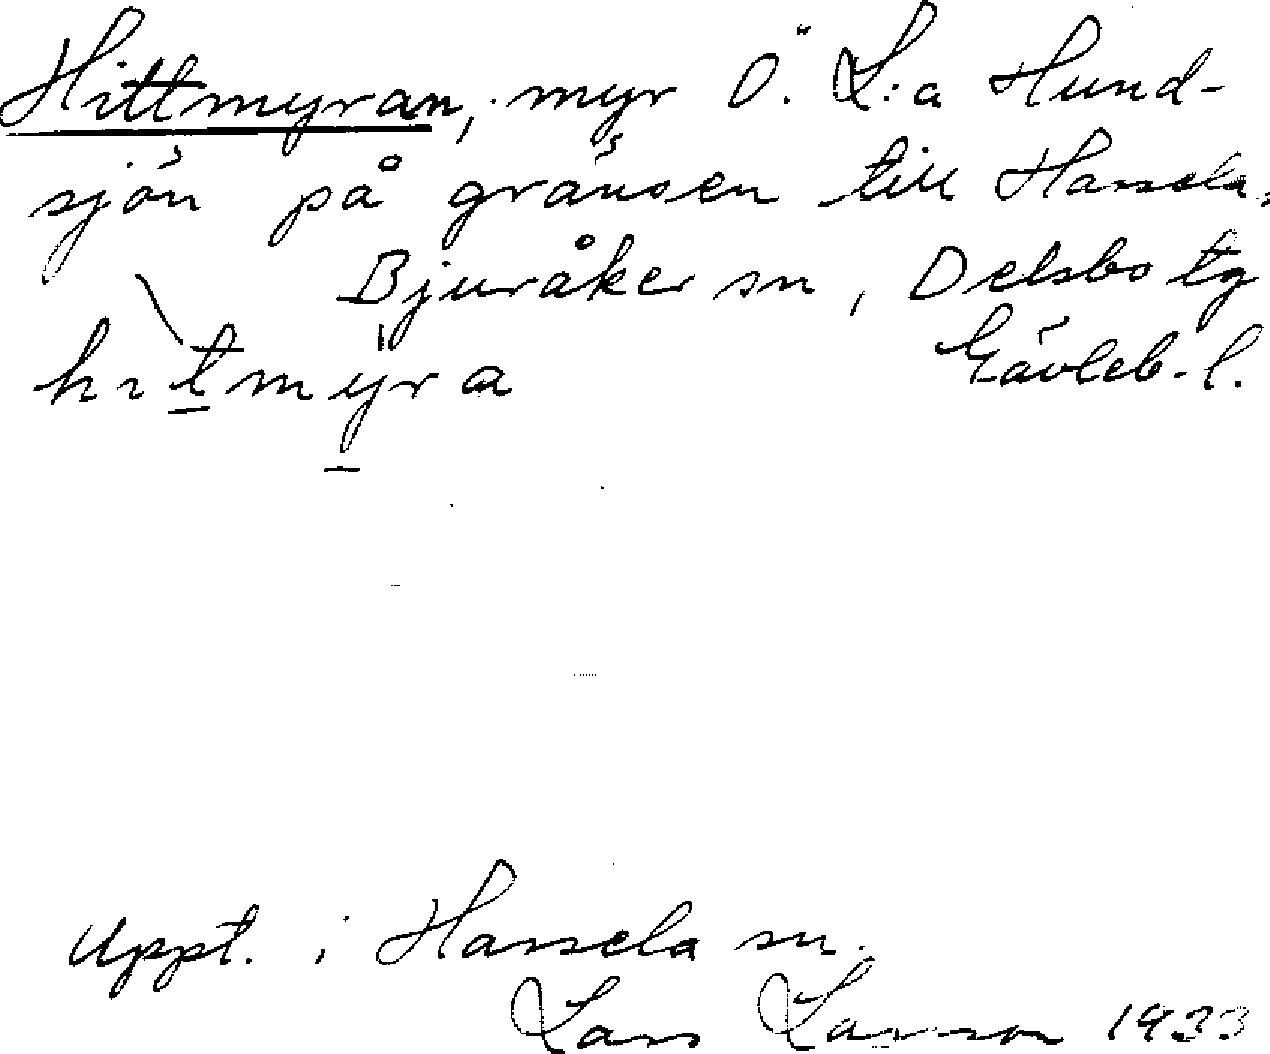 Hittmyran, myr Ö. L:a Hund-
sjön på gränsen till Hassela,
Bjuråker sn, Delsbo tg
Gävleb. l.
hıtmyra
Uppt. i Hassela sn.
Lars Larsson 1933